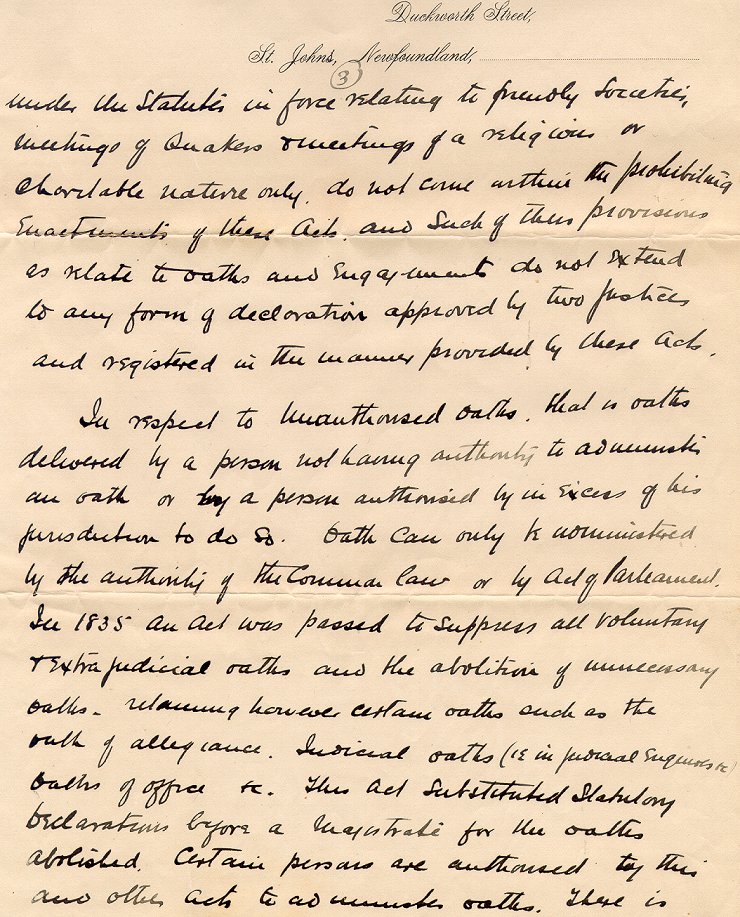 Duckworth Street,
St. John's, Newfoundland,
3
under the Statutes in force relating to friendly Societies,
meetings of Quakers & meetings of a religious or
Charitable nature only, do not come within the prohibiting
Enactments of these Acts. and Such of their provisions
as relate to oaths and Engagements do not Extend
to any form of declaration approved by two Justices
and registered in the manner provided by these Acts.
In respect to Unauthorised oaths, that is oaths
delivered by a person not having authority to administer
an oath or by a person authorised by in Excess of his
jurisdiction to do so. Oath Can only be administered
by the authority of the Common Law or by Act of Parliament.
In 1835 an Act was passed to Suppress all Voluntary
& Extra judicial oaths and the abolition of unnecessary
oaths - retaining however certain oaths such as the
oath of allegiance. Judicial oaths (IE in judicial Enquiries &c)
Oaths of office &c. This Act Substituted Statutory
Declarations before a Magistrate for the oaths
abolished. Certain persons are authorised by this
and other Acts to administer oaths. There is